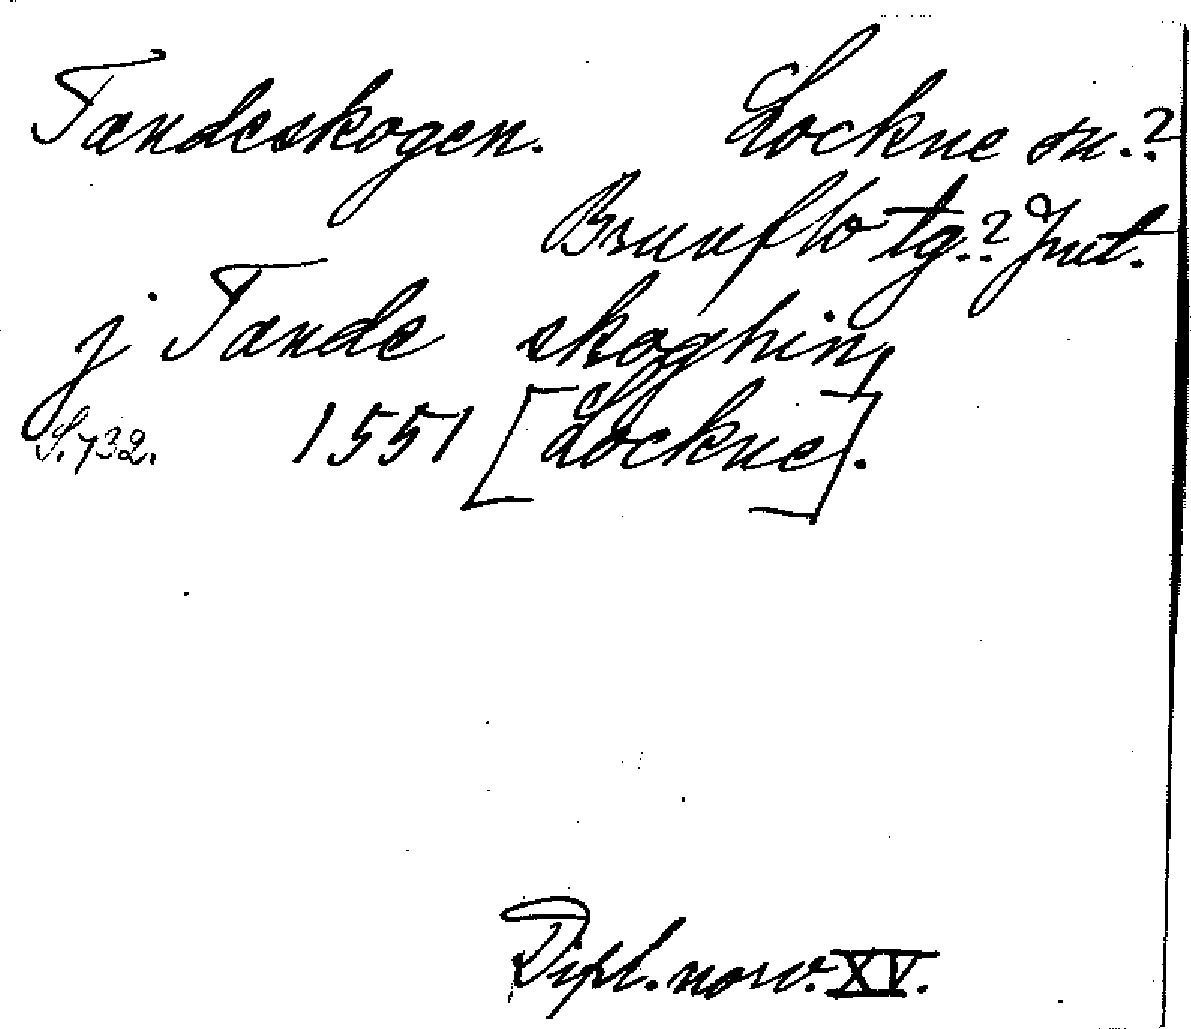 Tandeskogen. Lockne sn.?
Brunflo tg.? Jmt.
j Tande skoghin,
S. 732. 1551 [Lockne].
Dipl. norv. XV.